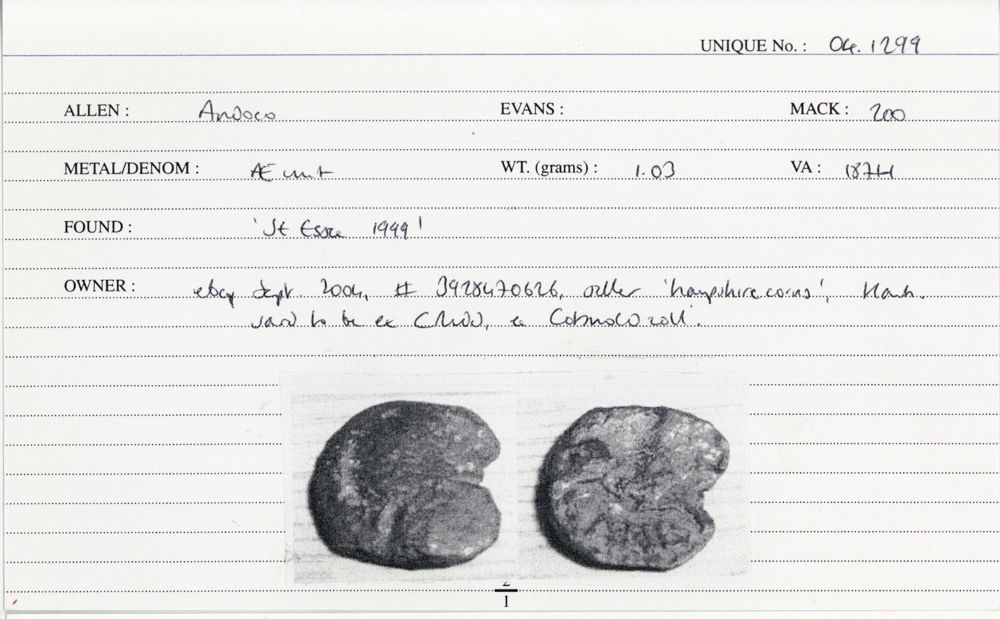 UNIQUE No. : 04.1299
ALLEN : Andoco EVANS : MACK : 200
METAL/DENOM : Æ unit WT. (grams) : 1.03 VA : 1871
FOUND : 'St Essex 1999'
OWNER : ebay Sept. 2004, # 3928470626, seller 'hampshirecoins', Hants.
said to be ex
2
1